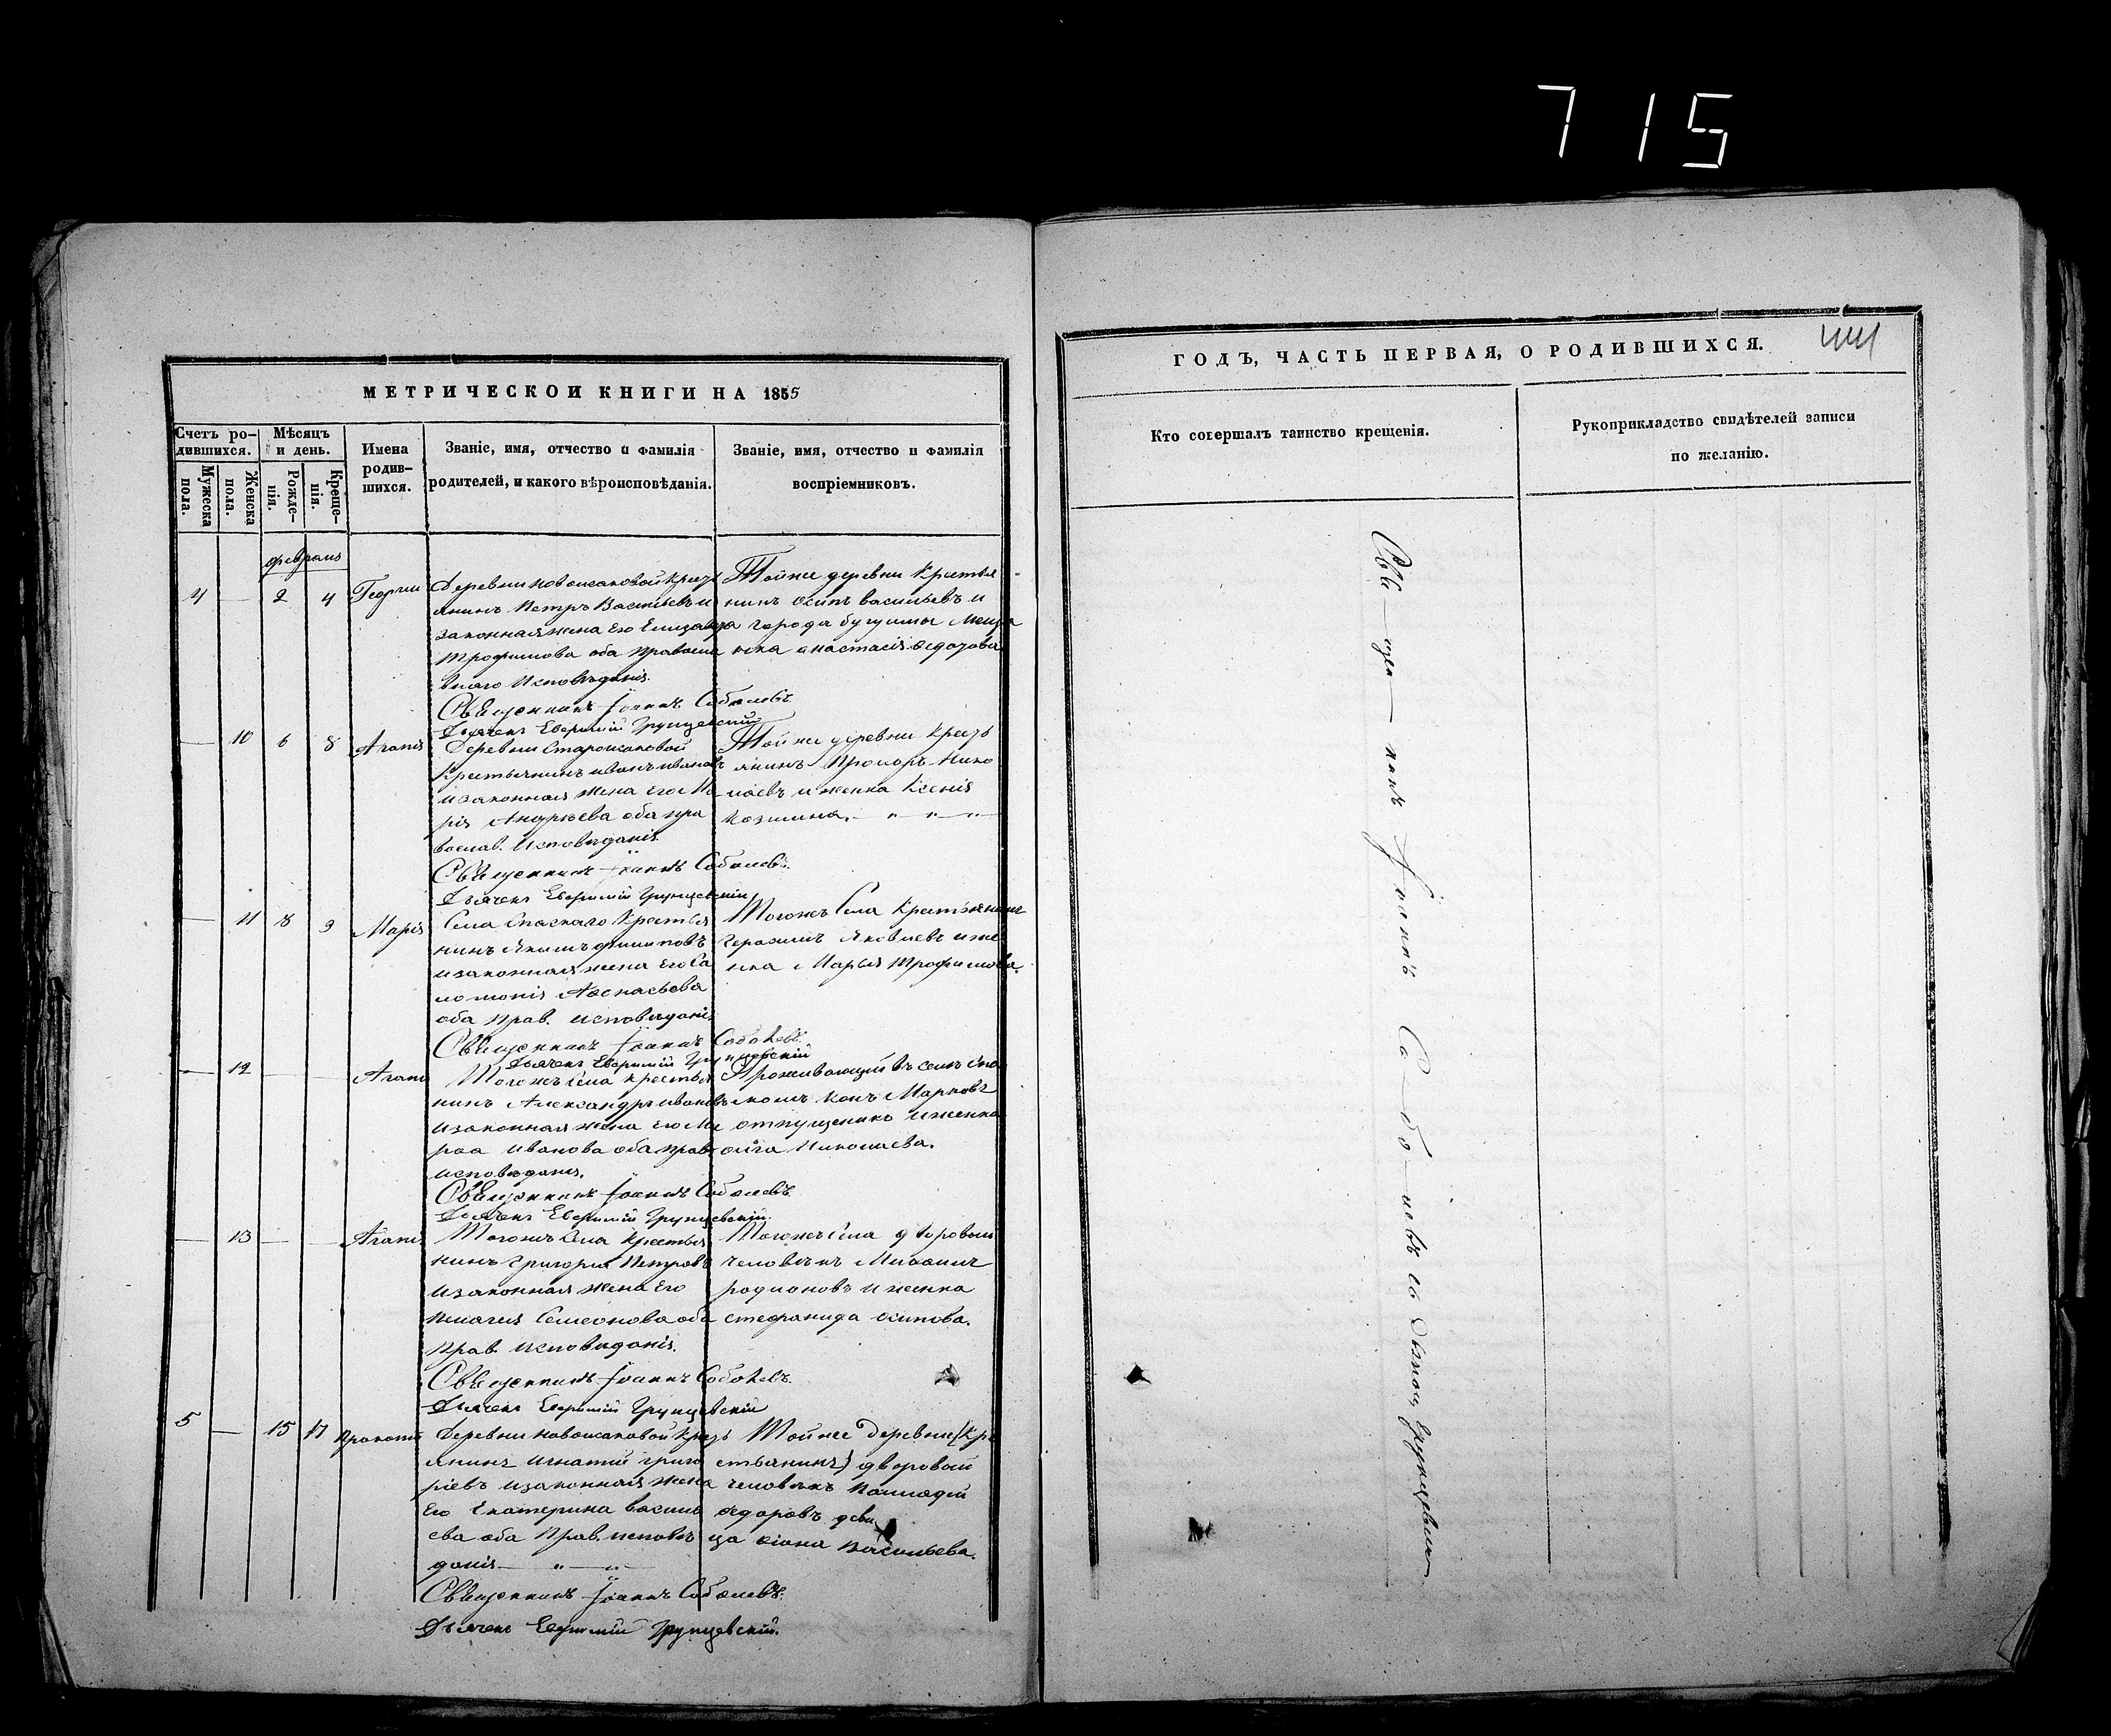 715
МЕТРИЧЕСКОЙ КНИГИ НА 1855
Счетъ ро-
дившихся.
Мѣсяцъ
и день.
Имена
родив-
шихся.
Званіе, имя, отчество и фамилія
родителей, и какого вѣроисповѣданія.
Званіе, имя, отчество и фамилія
воспріемниковъ.
Мужеска
пола.
Женска
пола.
Рожде-
нія.
Креще-
нія.
февраль
4 — 2 4 Георгии
Деревни новоисаковой Кресть
янинъ Петръ Васильевъ и
законная жена Его Елизавѣ
Трофимова оба Правосла
внаго Исповѣданія.
Священникъ Іоаннъ Соболевъ.
Дьячекъ Евфимій Грунцевскій
Той же деревни Крестья
нинъ Осипъ васильевъ и
города бугульмы Меща
нка анастасія Ѳедотова
— 10 6 8 Агапія
Деревни Староисаковой
Крестьянинъ иванъ ивановъ
и законная жена его Ма
рія Андрѣева оба пра
вослав. Исповѣданія.
Священникъ Іоаннъ Соболевъ.
Дьячекъ Евфимій Грунцевскій
Той же деревни Кресть
янинъ Прохоръ Нико
лаевъ и женка Ксенія
Козмина.
— 11 8 9 Марія
Села Спаскаго Крестья
нинъ Якимъ филиповъ
и законная жена его Са
ломонія Аѳонасьева
оба Прав. исповѣданія
Священникъ Іоаннъ Соболевъ.
Дьячекъ Евфимій Грунцевскій
Тогожъ Села Крестьянинъ
Герасимъ Яковлевъ и же
нка Марья Трофимова.
— 12 — — Агапія
Тогожъ Села Крестья
нинъ Александръ ивановъ
и законная жена его Ма
ра иванова оба прав
исповѣданія.
Священникъ Іоаннъ Соболевъ.
Дьячекъ Евфимій Грунцевскій.
Проживающій въ селѣ Спа
скомъ Марковъ
отпущенико и женка
олга Николаева.
— 13 — — Агапія
Тогожъ Села Крестья
нинъ Григорій Петровъ
и законная жена его
Пелагея Семеонова оба
Прав. исповѣданія.
Священникъ Іоаннъ Соболевъ.
Дьячекъ Евфимій Грунцевскій
Тогожъ Села дворовый
человѣкъ Михаилъ
родионовъ и женка
стефанида осипова.
5 — 15 17 Прокопій
Деревни новоисаковой Кресть
янинъ Игнатий григо
ріевъ и законная жена
Его Екатерина василь
ева оба Прав. исповѣ
данія
Священникъ Іоаннъ Соболевъ.
Дьячекъ Евфимій Грунцевскій.
Той же Деревни (Кре
стьянинъ) дворовый
человѣкъ
Ѳедоровъ деви
ца Васильева.
ГОДЪ, ЧАСТЬ ПЕРВАЯ, О РОДИВШИХСЯ.
Кто совершалъ таинство крещенія.
Рукоприкладство свидѣтелей записи
по желанію.
Свя — щен — никъ Іоаннъ Со — бо — левъ съ Дьячкомъ Грунцевскимъ